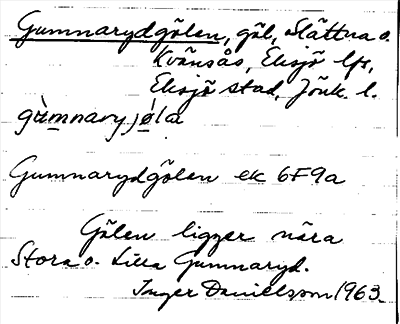 Gummarydgölen, göl, Slättna o.
Kvänsås, Eksjö lfs,
Eksjö stad, Jönk. l.
gùmnaryjø̀la
Gummarydgölen ek 6F9a
Gölen ligger nära
Stora o. Lilla Gummaryd.
Inger Danielsson 1963.